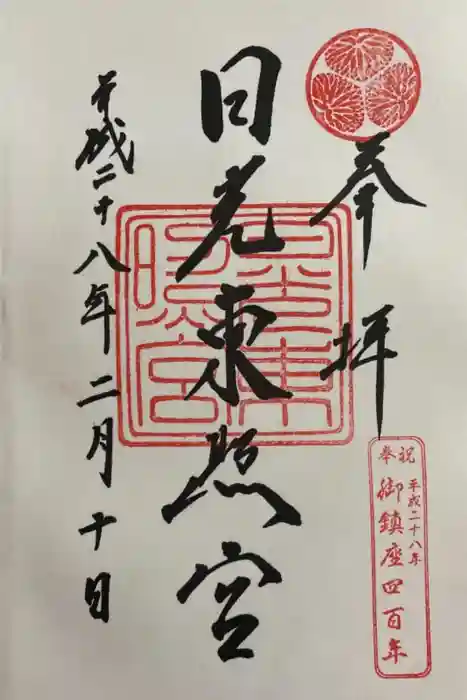 奉拝
日光東照宮
平成二十八年二月十日
日光東照宮
奉祝
平成二十八年
御鎮座四百年